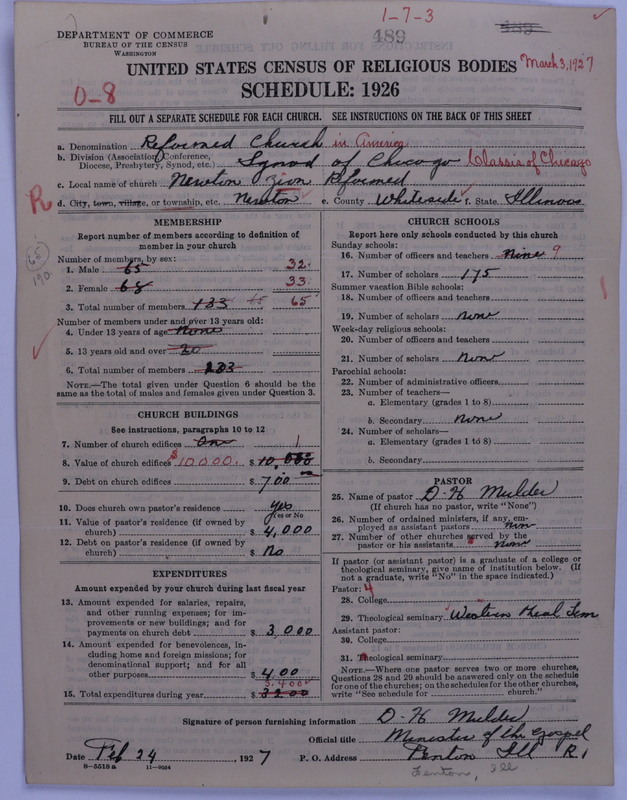 1-7-3
DEPARTMENT OF COMMERCE
BUREAU OF THE CENSUS
WASHINGTON
489
489
UNITED STATES CENSUS OF RELIGIOUS BODIES March 3, 1927
SCHEDULE: 1926
0-8
FILL OUT A SEPARATE SCHEDULE FOR EACH CHURCH. SEE INSTRUCTIONS ON THE BACK OF THIS SHEET
a. Denomination Reformed Church in America
b. Division (Association, Conference, Diocese, Presbytery, Synod, etc.) Synod of Chicago Classis of Chicago
c. Local name of church Newton Zion Reformed
d. City, town, village, or township, etc. Newton e. County Whiteside f. State Illinois
R
MEMBERSHIP
Report number of members according to definition of
member in your church
Number of members, by sex:
1. Male 65 32
2. Female 68 33
3. Total number of members 133 65 65
Number of members under and over 13 years old:
4. Under 13 years of age None
5. 13 years old and over 20
6. Total number of members 233
NOTE.—The total given under Question 6 should be
same as the total of males and females given under Question 3.
CHURCH BUILDINGS
See instructions, paragraphs 10 to 12
7. Number of church edifices One 1
8. Value of church edifices $10000. $10,000
9. Debt on church edifices $700
10. Does church own pastor's residence yes
Yes or No
11. Value of pastor's residence (if owned by
church) $4,000
12. Debt on pastor's residence (if owned by
church) $ No
EXPENDITURES
Amount expended by your church during last fiscal year
13. Amount expended for salaries, repairs,
and other running expenses; for im-
provements or new buildings; and for
payments on church debt $3,000
14. Amount expended for benevolences, in-
cluding home and foreign missions; for
denominational support; and for all
other purposes $400
3.400
15. Total expenditures during year $3200
CHURCH SCHOOLS
Report here only schools conducted by this church
Sunday schools:
16. Number of officers and teachers Nine 9
17. Number of scholars 175
Summer vacation Bible schools:
18. Number of officers and teachers
19. Number of scholars none
Week-day religious schools:
20. Number of officers and teachers
21. Number of scholars None
Parochial schools:
22. Number of administrative officers
23. Number of teachers—
a. Elementary (grades 1 to 8)
b. Secondary none
24. Number of scholars—
a. Elementary (grades 1 to 8)
b. Secondary
PASTOR
25. Name of pastor D. H. Mulder
(If church has no pastor, write "None")
26. Number of ordained ministers, if any, em-
ployed as assistant pastors None
27. Number of other churches served by the
pastor or his assistants None
If pastor (or assistant pastor) is a graduate of a college or
theological seminary, give name of institution below. (If
not a graduate, write "No" in the space indicated.)
Pastor: 4
28. College
29. Theological seminary Western Theal Sem
Assistant pastor:
30. College
31. Theological seminary
NOTE.—Where one pastor serves two or more churches,
Questions 28 and 29 should be answered only on the schedule
for one of the churches; on the schedules for the other churches,
write "See schedule for church."
Signature of person furnishing information D. H. Mulder
Official title Minister of the Gospel
Date Feb 24, 1927 P. O. Address Fenton Ill R1
8-5518a 11-9054
Fenton, Ill